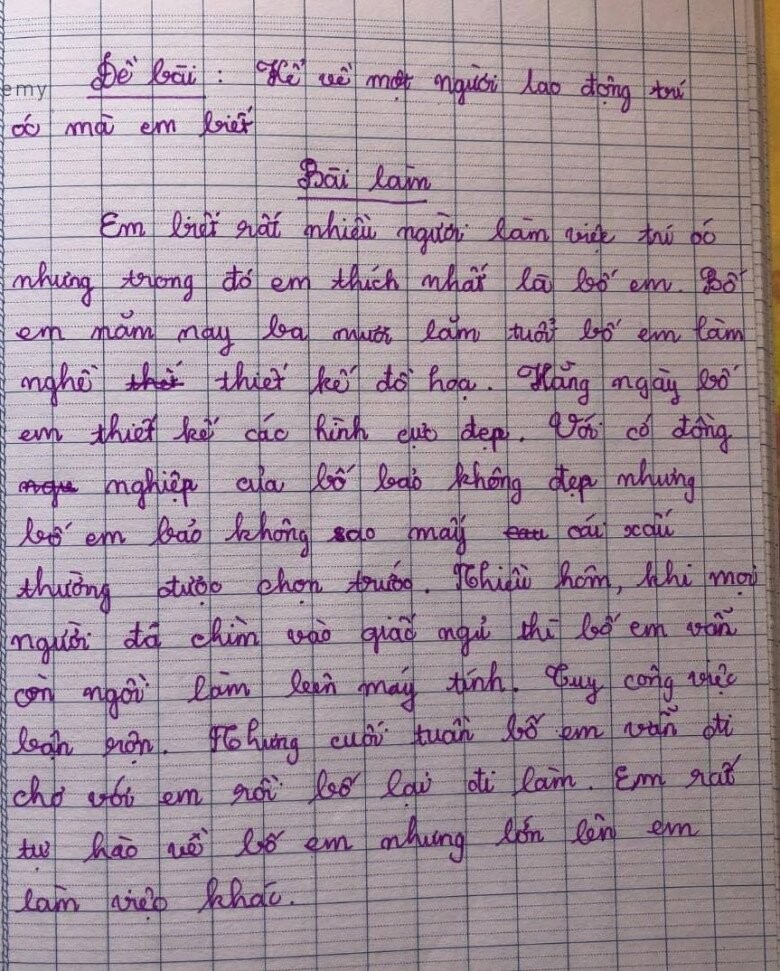 emy
Đề bài : Kể về một người lao động trí
óc mà em biết
Bài làm
Em biết rất nhiều người làm việc trí óc
nhưng trong đó em thích nhất là bố em. Bố
em năm nay ba mươi lăm tuổi bố em làm
nghề thiết kế đồ họa. Hằng ngày bố
em thiết kế các hình cực đẹp. Với cô đồng
nghiệp của bố bảo không đẹp nhưng
bố em bảo không sao mấy cái xấu
thường được chọn trước. Nhiều hôm, khi mọi
người đã chìm vào giấc ngủ thì bố em vẫn
còn ngồi làm lên máy tính. Tuy công việc
bận rộn. Nhưng cuối tuần bố em vẫn đi
chợ với em rồi bố lại đi làm. Em rất
tự hào về bố em nhưng lớn lên em
làm việc khác.